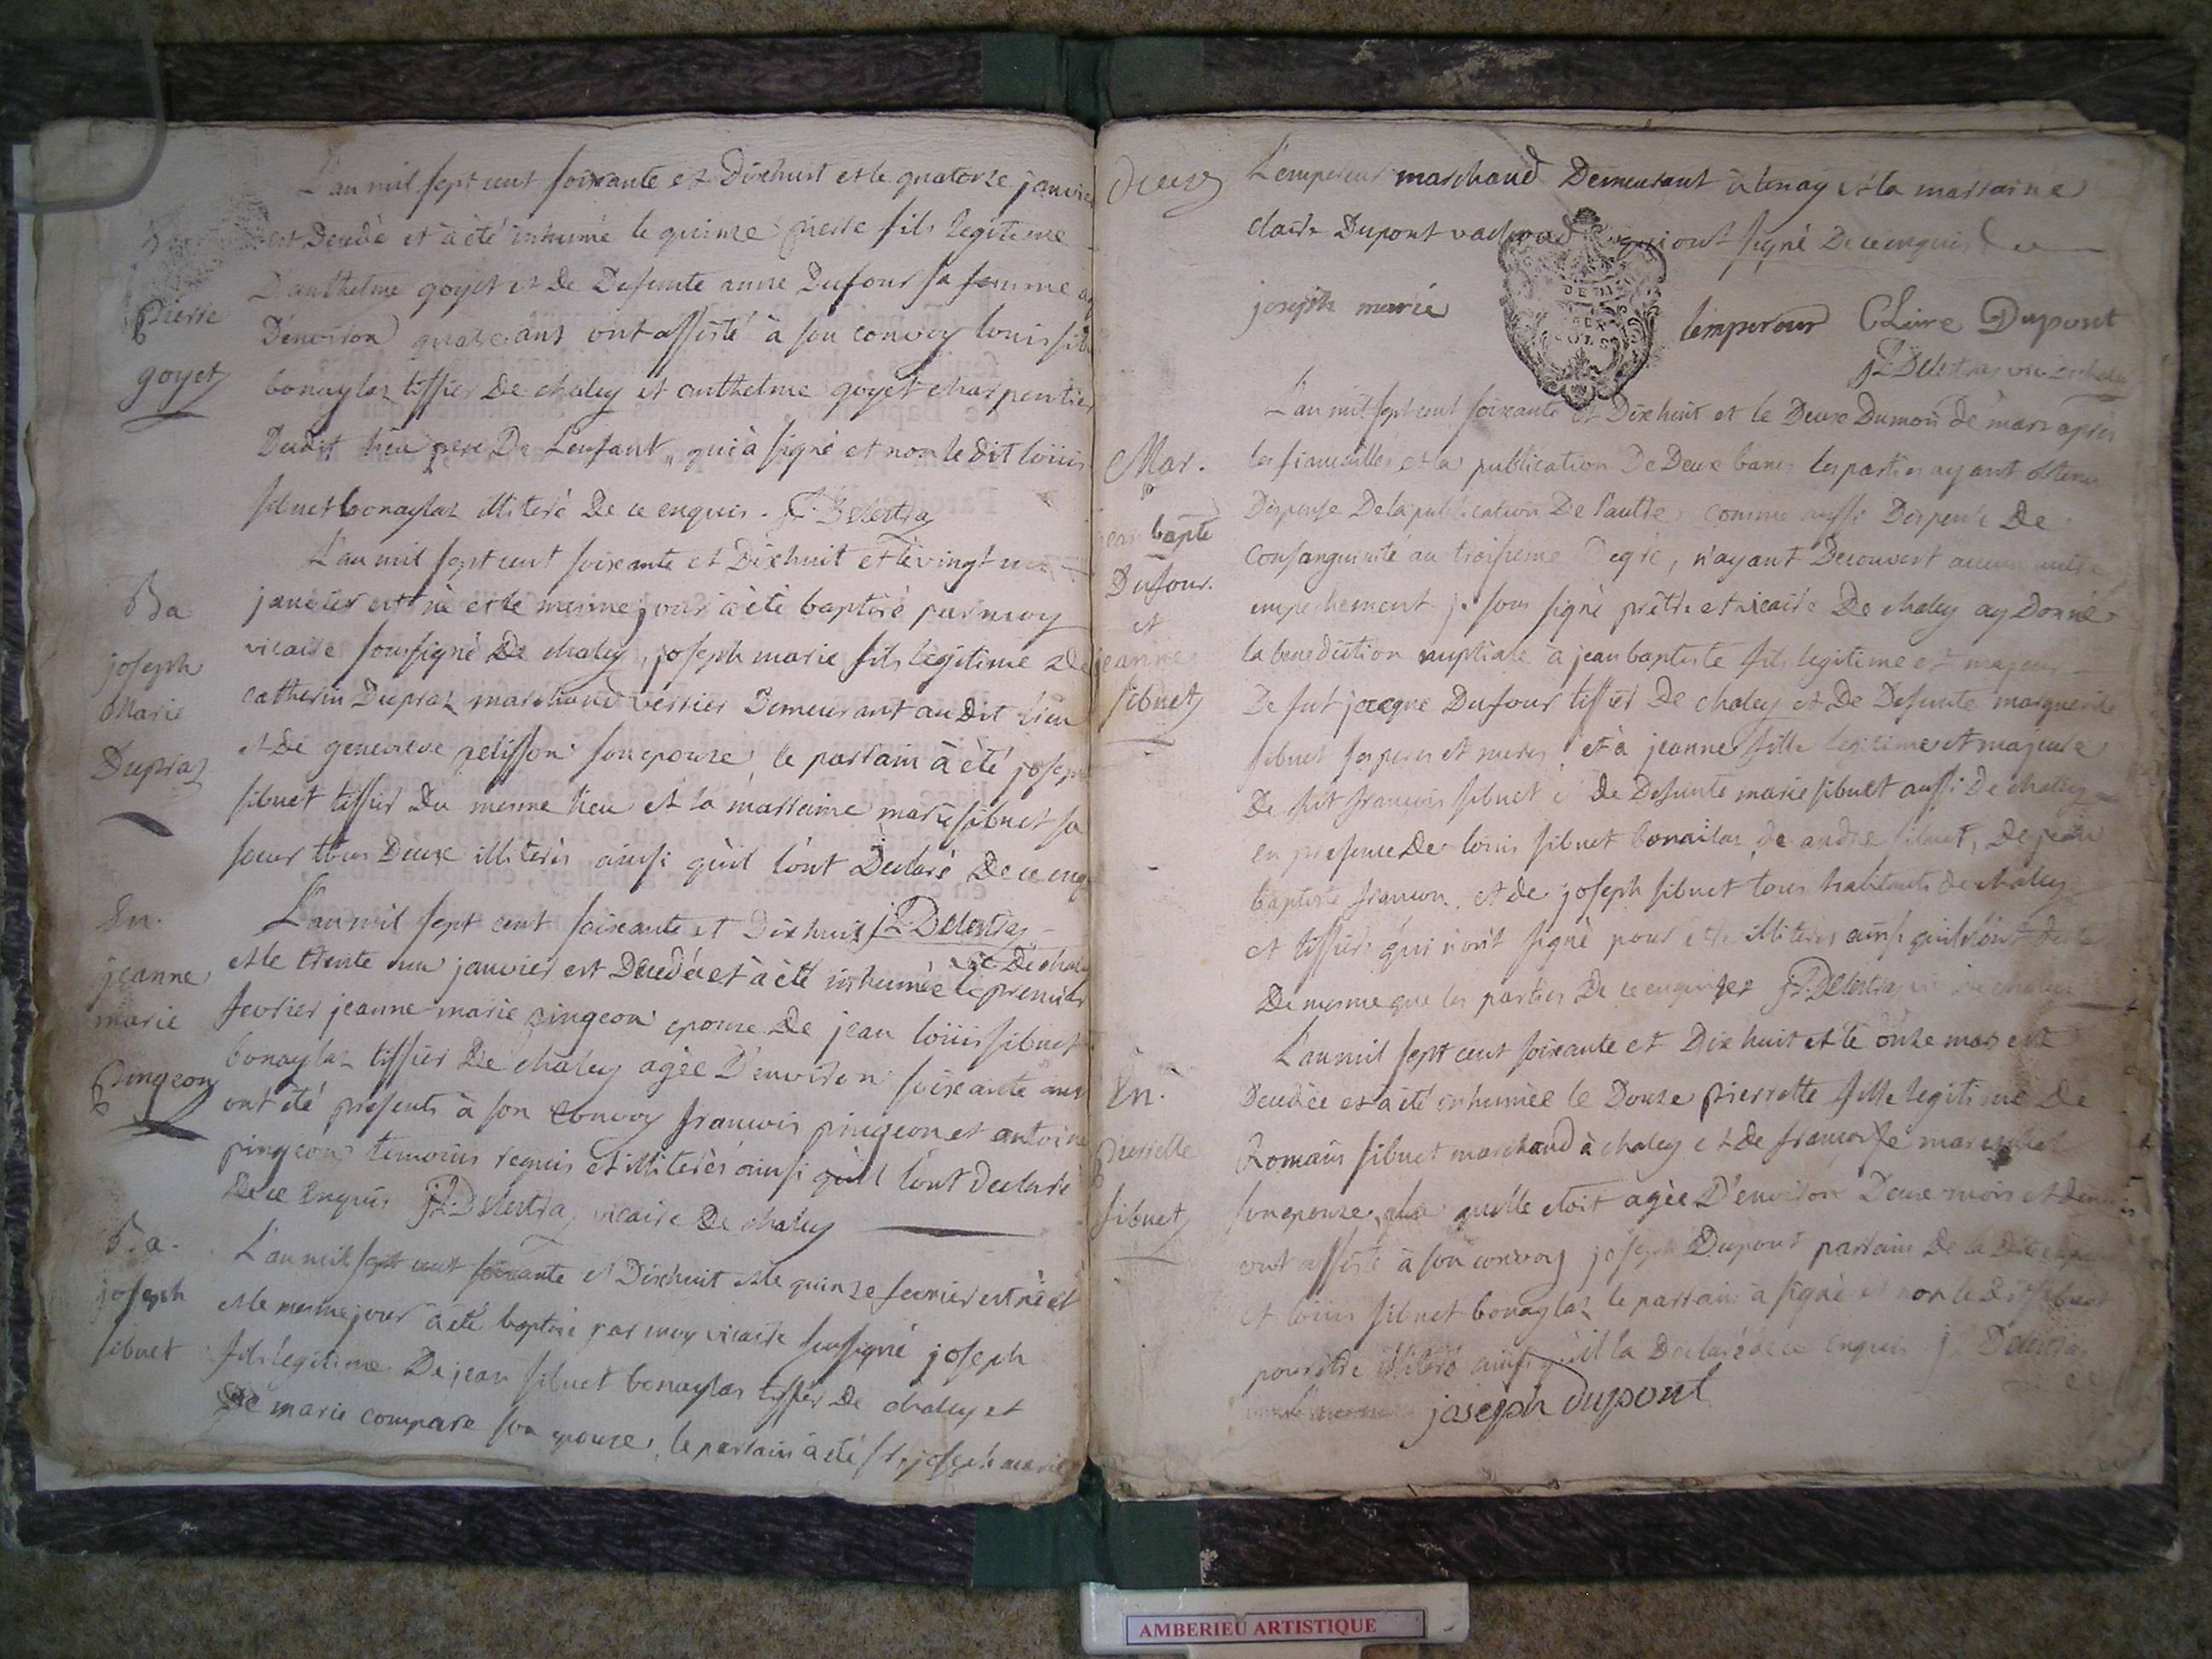 L'an mil sept cent soixante et Dixhuit et le quatorze janvier
est Decedé et a été inhumé le quinze pierre fils legitime
D'anthelme goyet et de Defunte anne Dufour sa femme
D'environ quatre ans ont assisté à son convoy louis sib
bonaylaz tissier De chaley et anthelme goyet charpentier
Dudit lieu pere De L'enfant, qui à signé et non le dit loüis
sibuet bonaylaz illiteré De ce enquis. J.L. Delestra
Pierre
goyet
L'an mil sept cent soixante et Dixhuit et le vingt
janvier est né et le mesme jour à été baptisé par moy
vicaire soussigné De chaley, joseph marie fils legitime De
catherin Dupraz marchand verrier Demeurant au Dit lieu
et De genevieve pelisson son epouse le parrain à été joseph
sibuet tissier Du mesme lieu et la marraine marie sibuet sa
soeur tous Deux illiterés ainsi qu'il l'ont Declaré De ce enq
Ba
joseph
Marie
Dupraz
L'an mil sept cent soixante et Dixhuit J.L. Delestra
vic De chaley
et le trente un janvier est Decedée et à été inhumée le premier
fevrier jeanne marie pingeon epouse De jean loüis sibuet
bonaylaz tissier De chaley agée D'environ soixante ans
ont été presents à son convoy francois pingeon et antoine
pingeon temoins requis et illiterés ainsi qu'il l'ont declaré
De ce Enquis J.L. Delestra vicaire De chaley
En.
jeanne
marie
Pingeon
L'an mil sept cent soixante et Dixhuit et le quinze fevrier est né et
et le mesme jour à été baptisé par moy vicaire soussigné joseph
fils legitime De jean sibuet bonaylaz tissier De chaley et
De marie compare son epouse, le parrain à été sr. joseph marie
Ba.
joseph
sibuet
Deux
L'empereur marchand Demeurant à tenay et la marraine
claire Dupont qui ont signé De ce enquis
DEUX
SOLS
joseph marie lempereur CLaire Dupont
J.L. Delestra vic. De chaley
L'an mil sept cent soixante et Dixhuit et le Deux Du mois De mars apres
les fiancailles et la publication De Deux bancs les parties ayant obtenu
Dispense De la publication De l'autre comme aussi Dispense De
Consanguinité au troisieme Degré, n'ayant Decouvert aucun autre
empechement je sous signé prêtre et vicaire De chaley ay Donné
la benediction nuptiale à jean baptiste fils legitime et majeur
De fut jacque Dufour tissier De chaley et De Defunte marguerite
sibuet ses peres et meres, et à jeanne fille legitime et majeure
De fut francois sibuet et De Defunte marie sibuet aussi De chaley
en presence De louis sibuet bonailaz, de andre sibuet, De jean
baptiste francon, et de joseph sibuet tous habitants de chaley
et tissiers qui n'ont signé pour etre illiterés ainsi qu'il l'ont
De mesme que les parties De ce enquises J.L. Delestra vic De chaley
Mar.
jean bapte
Dufour.
et
jeanne
sibuet
L'an mil sept cent soixante et Dix huit et le onze mars est
Decedée et à été inhumée le Douze pierrette fille legitime De
Romain sibuet marchand à chaley et De francoise
son epouse, la quelle etoit agée D'environ Deux mois et demi
ont assisté à son convoy joseph Dupont parrain De la Dite
et loüis sibuet bonaylaz le parrain à signé et non le Dit sibuet
pour être illiteré ainsi qu'il la Declaré de ce enquis J.L. Delestra
joseph dupont
En.
Pierrette
sibuet
AMBERIEU ARTISTIQUE